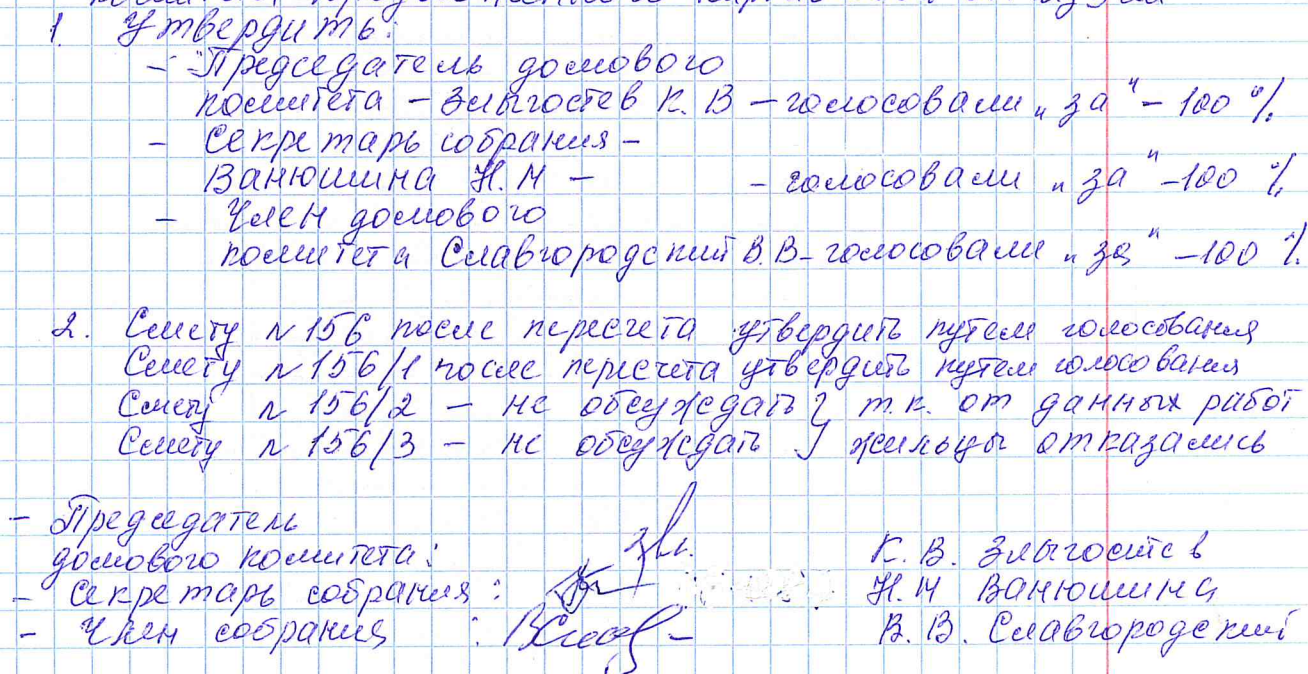 1. Утвердить:
- Председатель домового
комитета - Злыгостев К. В - голосовали "за" - 100 %
- Секретарь собрания -
Ванюшина Н. М - - голосовали "за" - 100 %
- Член домового
комитета Славгородский В. В - голосовали "за" - 100 %
2. Смету №156 после пересчета утвердить путем голосования
Смету №156/1 после пересчета утвердить путем голосования
Смету №156/2 - не обсуждать } т.к. от данных работ
Смету №156/3 - не обсуждать } жильцы отказались
- Председатель
домового комитета: К. В. Злыгостев
- Секретарь собрания: Н. М Ванюшина
- Член собрания : В. В. Славгородский